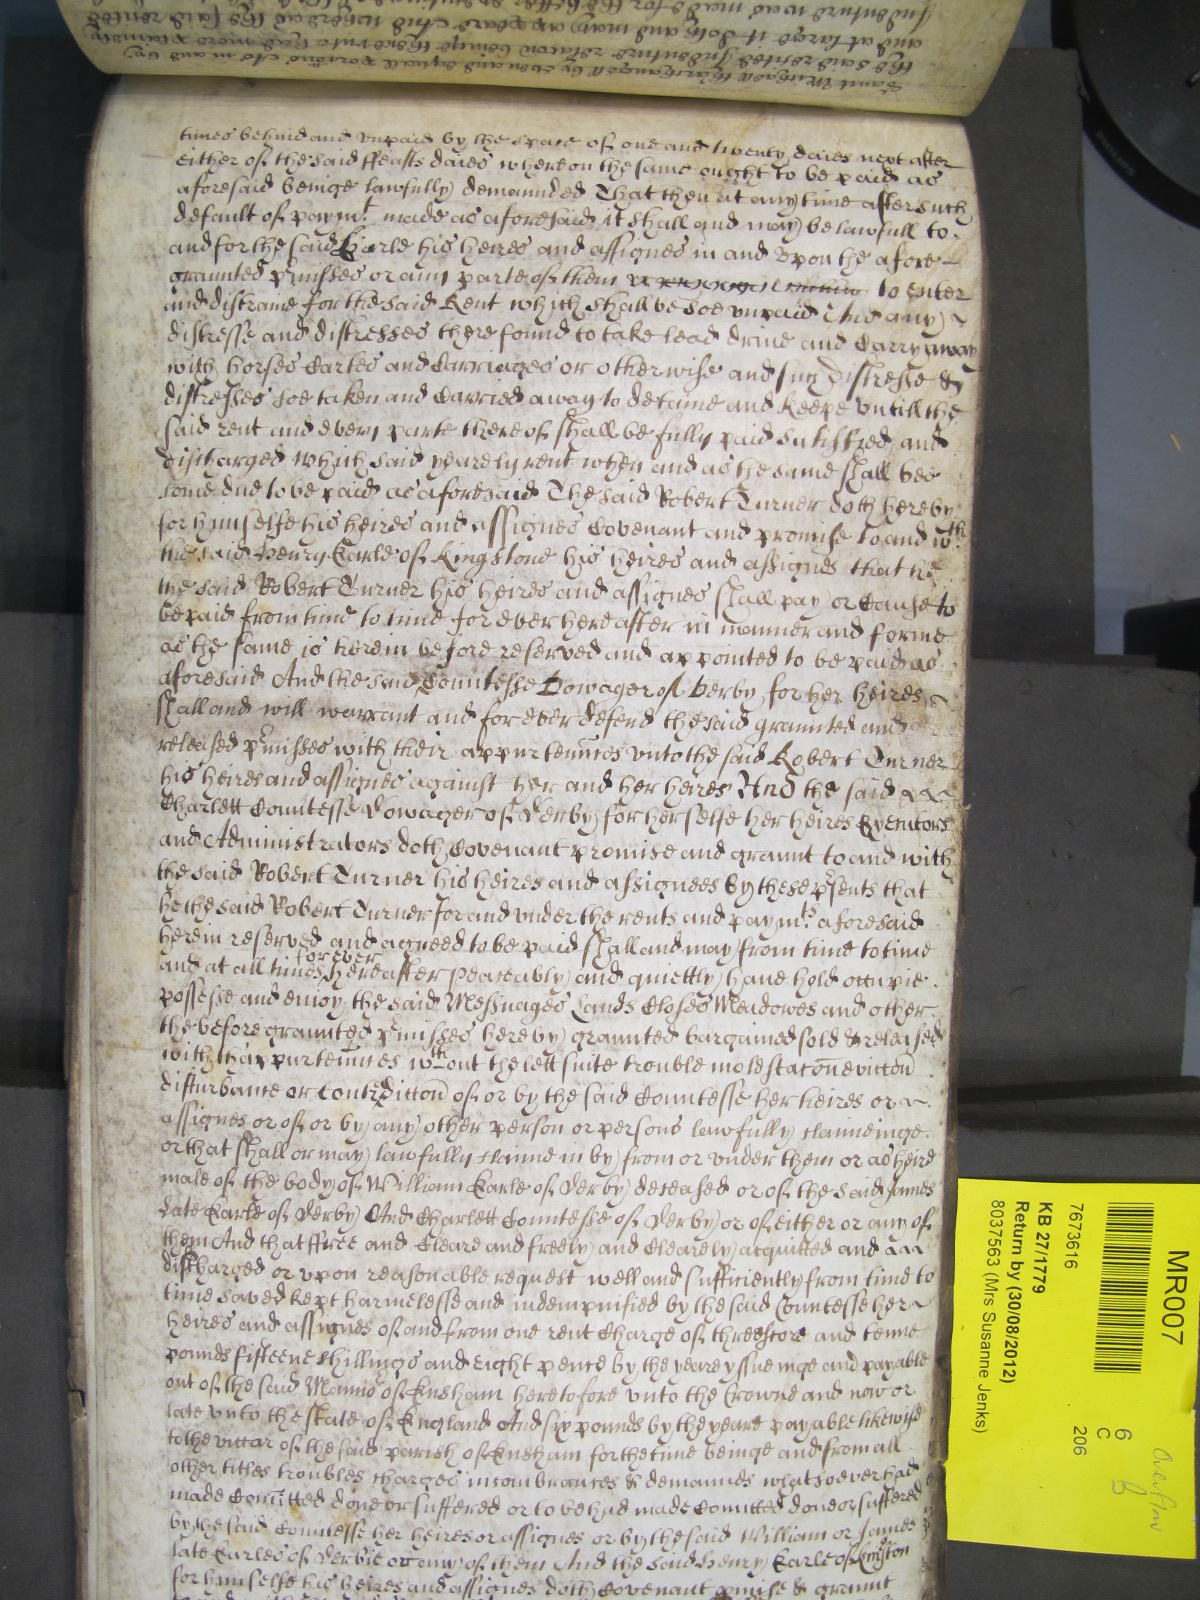 Saint Michaell Tharchangell by even and equall porcons As in and by
the said recited Indenture relacon beinge therevnto had more plainely
and at large it doth and may appeare And whereas the said recited
Indenture was made for the
times behind and vnpaid by the space of one and twenty daies next after
either of the said ffeasts daies whereon the same ought to be paid as
aforesaid beinge lawfully demaunded That then at any time after such
default of paymt made as aforesaid it shall and may be lawfull to
and for the said Earle his heires and assignes in and vpon the afore
graunted pmisses or any parte of them to enter
and distraine for the said Rent which shall be soe vnpaid And any
distresse and distresses there found to take lead drive and Carry away
with horses Cartes and Carriages or otherwise and such distresse &
distresses soe taken and Carried away to detaine and keepe vntill the
said rent and every parte thereof shall be fully paid satisfied and
discharged Which said yearely rent when and as the same shall bee
come due to be paid as aforesaid The said Robert Turner doth hereby
for himselfe his heires and assignes Covenant and promise to and wth
the said Henry Earle of Kingstone his heires and assignes that he
the said Robert Turner his heires and assignes shall pay or Cause to
be paid from time to time for ever hereafter in manner and forme
as the same is herein before reserved and appointed to be paid as
aforesaid And the said Countesse Dowager of Derby for her heires
shall and will warrant and for ever defend the said graunted and
released pmisses with their appurtenncs vnto the said Robert Turner
his heires and assignes against her and her heires And the said
Charlett Countesse Dowager of Derby for her selfe her heires Executors
and Administrators doth Covenant promise and graunt to and with
the said Robert Turner his heires and assignees by these psents that
he the said Robert Turner for and vnder the rents and paymts aforesaid
herein reserved and agreed to be paid shall and may from time to time
and at all times for ever hereafter peaceably and quiettly have hold occupie
possesse and enjoy the said Messuages Lands Closes Meadowes and other
the before graunted pmisses hereby graunted bargained sold & released
with thappurtennces wthout the lett suite trouble molestacon eviccon
disturbance or contradiccon of or by the said Countesse her heires or
assignes or of or by any other person or persons lawfully claimeinge
or that shall or may lawfully claime in by from or vnder them or as heire
male of the body of William Earle of Derby deceased or of the said James
late Earle of Derby And Charlett Countesse of Derby or of either or any of
them And that ffree and Cleare and freely and Clearely acquitted and
discharged or vpon reasonable request well and sufficiently from time to
time saved kept harmelesse and indempnified by the said Countesse her
heires and assignes of and from one rent Charge of threescore and tenne
pounds fifteene shillings and eight pence by the yeare yssueinge and payable
out of the said Mannor of Ensham heretofore vnto the Crowne and now or
late vnto the state of England And six pounds by the yeare payable likewise
to the viccar of the said parish of Ensham for the time beinge and from all
other titles troubles charges incombrances & demaunds whatsoever had
made Comitted done or suffered or to be had made Comitted done or suffered
by the said Countesse her heires or assignes or by the said William or James
late Earles of Derbie or any of them And the said Henry Earle of Kingston
for himselfe his heires and assignes doth Covenant pmise & graunt
MR007
6
C
206
7673616
KB 27/1779
Return by (30/08/2012)
8037563 (Mrs Susanne Jenks)
PHILIPS